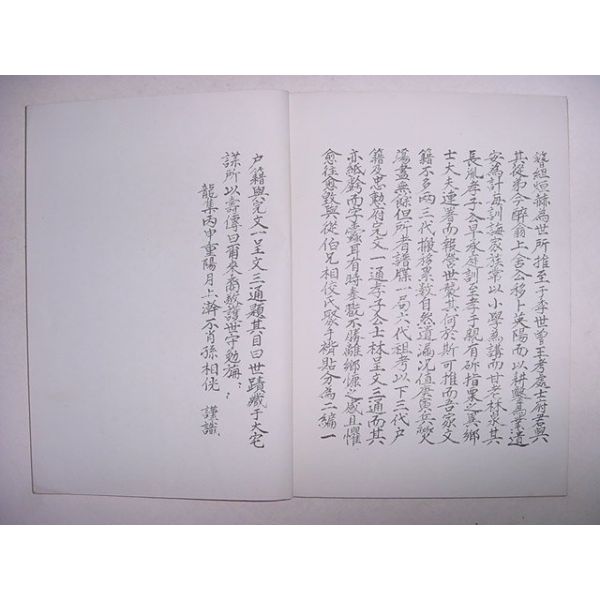 簪組烜赫為世所推至于李世曾王考處士府君與
其從弟今醉翁上舍公移卜英陽而以耕鑿為業遺
安為計每訓誨家族常以小學為講而甘老林泉其
長胤孝子公早承府訓至孝于親有斫指果之異鄉
士大夫連署而報營世襲其何於斯可推而吾家文
籍不多兩三代搬移累数自然遺漏况值庚寅兵燹
蕩盡無餘但所者譜牒一局六代祖考以下三代戶
籍及忠勳府完文一通孝子公士林呈文三通而其
亦紙幹而字蠹耳有時奉翫不勝離鄉慷之感且懼
愈往愈毀與從伯兄相佼氏聚手褙貼分為二編一
戶籍與完文一呈文三通顯其目曰世蹟藏于大宅
謀所以壽傳曰爾來裔敬護世守勉旃
龍集丙申重陽月上澣不肖孫相侊 謹識